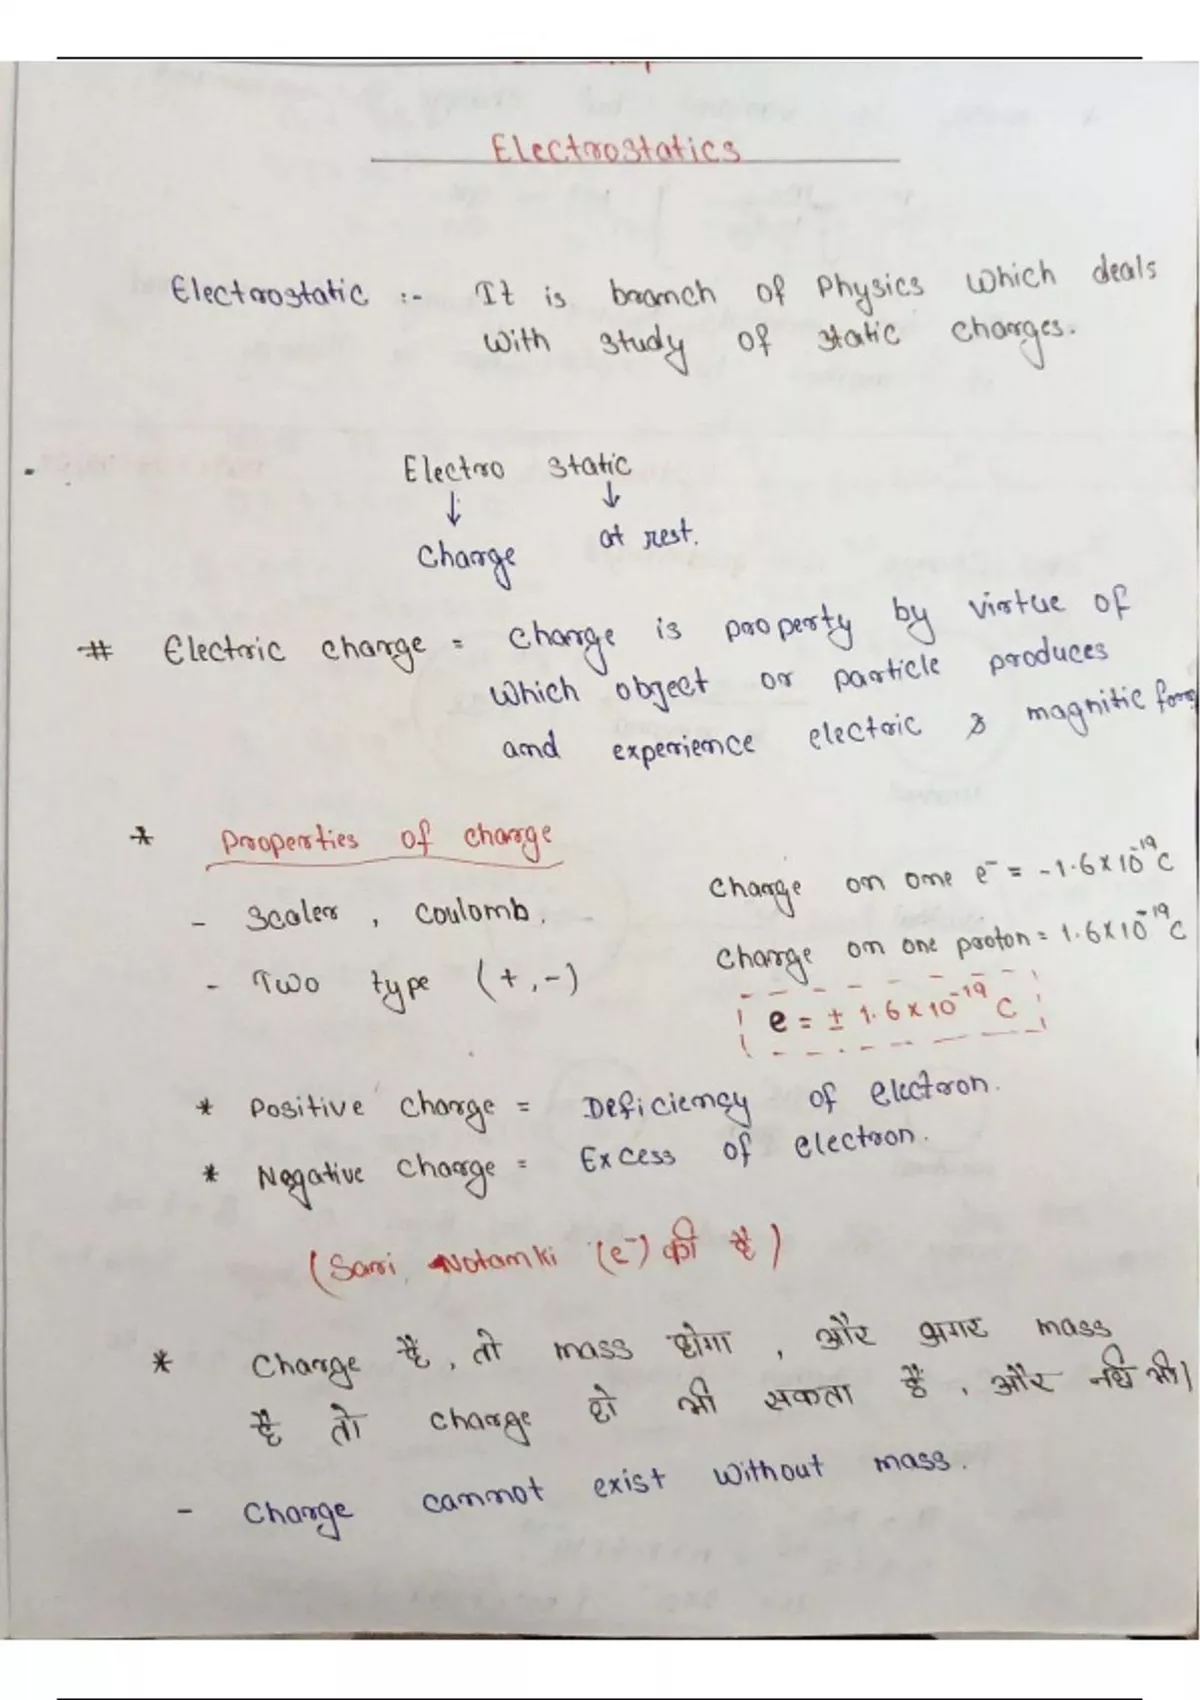 Electrostatics
Electrostatic :- It is branch of Physics which deals
with study of static charges.
Electro static
↓ ↓
Charge at rest.
# Electric charge = Charge is property by virtue of
which object or particle produces
and experience electric & magnitic
* Properties of charge
- Scaler , Coulomb.
- Two type (+,-)
Charge on one e⁻ = -1.6×10⁻¹⁹C
Charge on one proton = 1.6×10⁻¹⁹C
e = ± 1.6×10⁻¹⁹ C
* Positive charge = Deficiency of electron.
* Negative charge = Excess of electron.
(Sari Notamki (e⁻) की है)
* Charge है, तो mass होगा , और अगर mass
है तो charge हो भी सकता है , और नहीं भी।
- Charge cannot exist without mass.